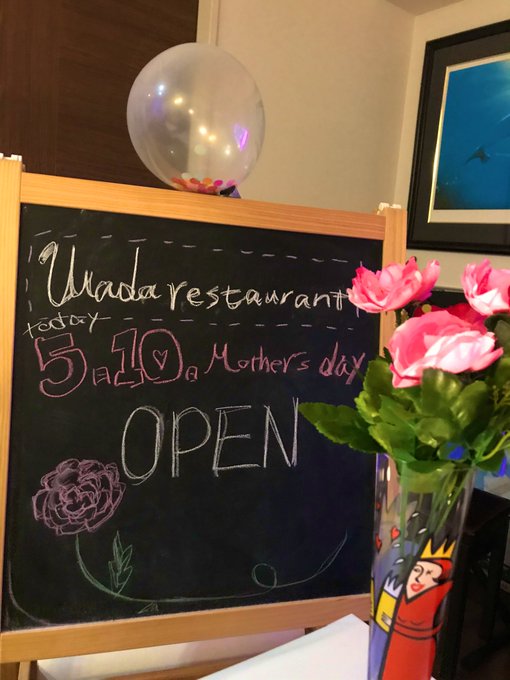 Wada restaurant
today
5=10. Mother's day
OPEN